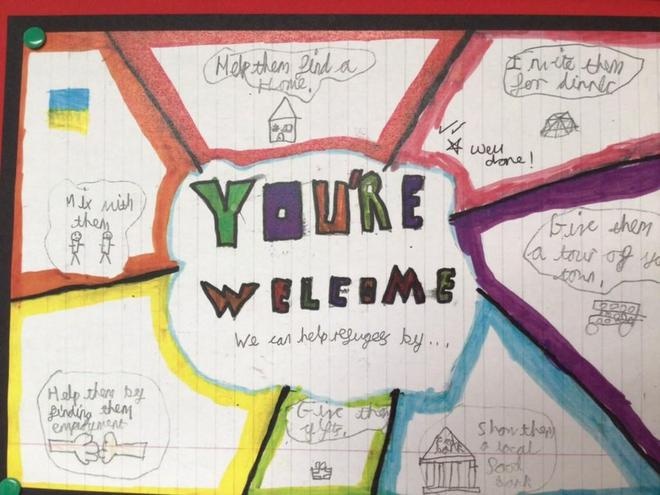 Help them find a
Home!
Invite them
for dinner
Well
done!
Mix with
them
YOU'RE
WELCOME
We can help refugees by...
Give them
a tour of yo
town.
Help them by
finding them
employment
Give them
gifts.
Show them
a local
food
bank
food
bank